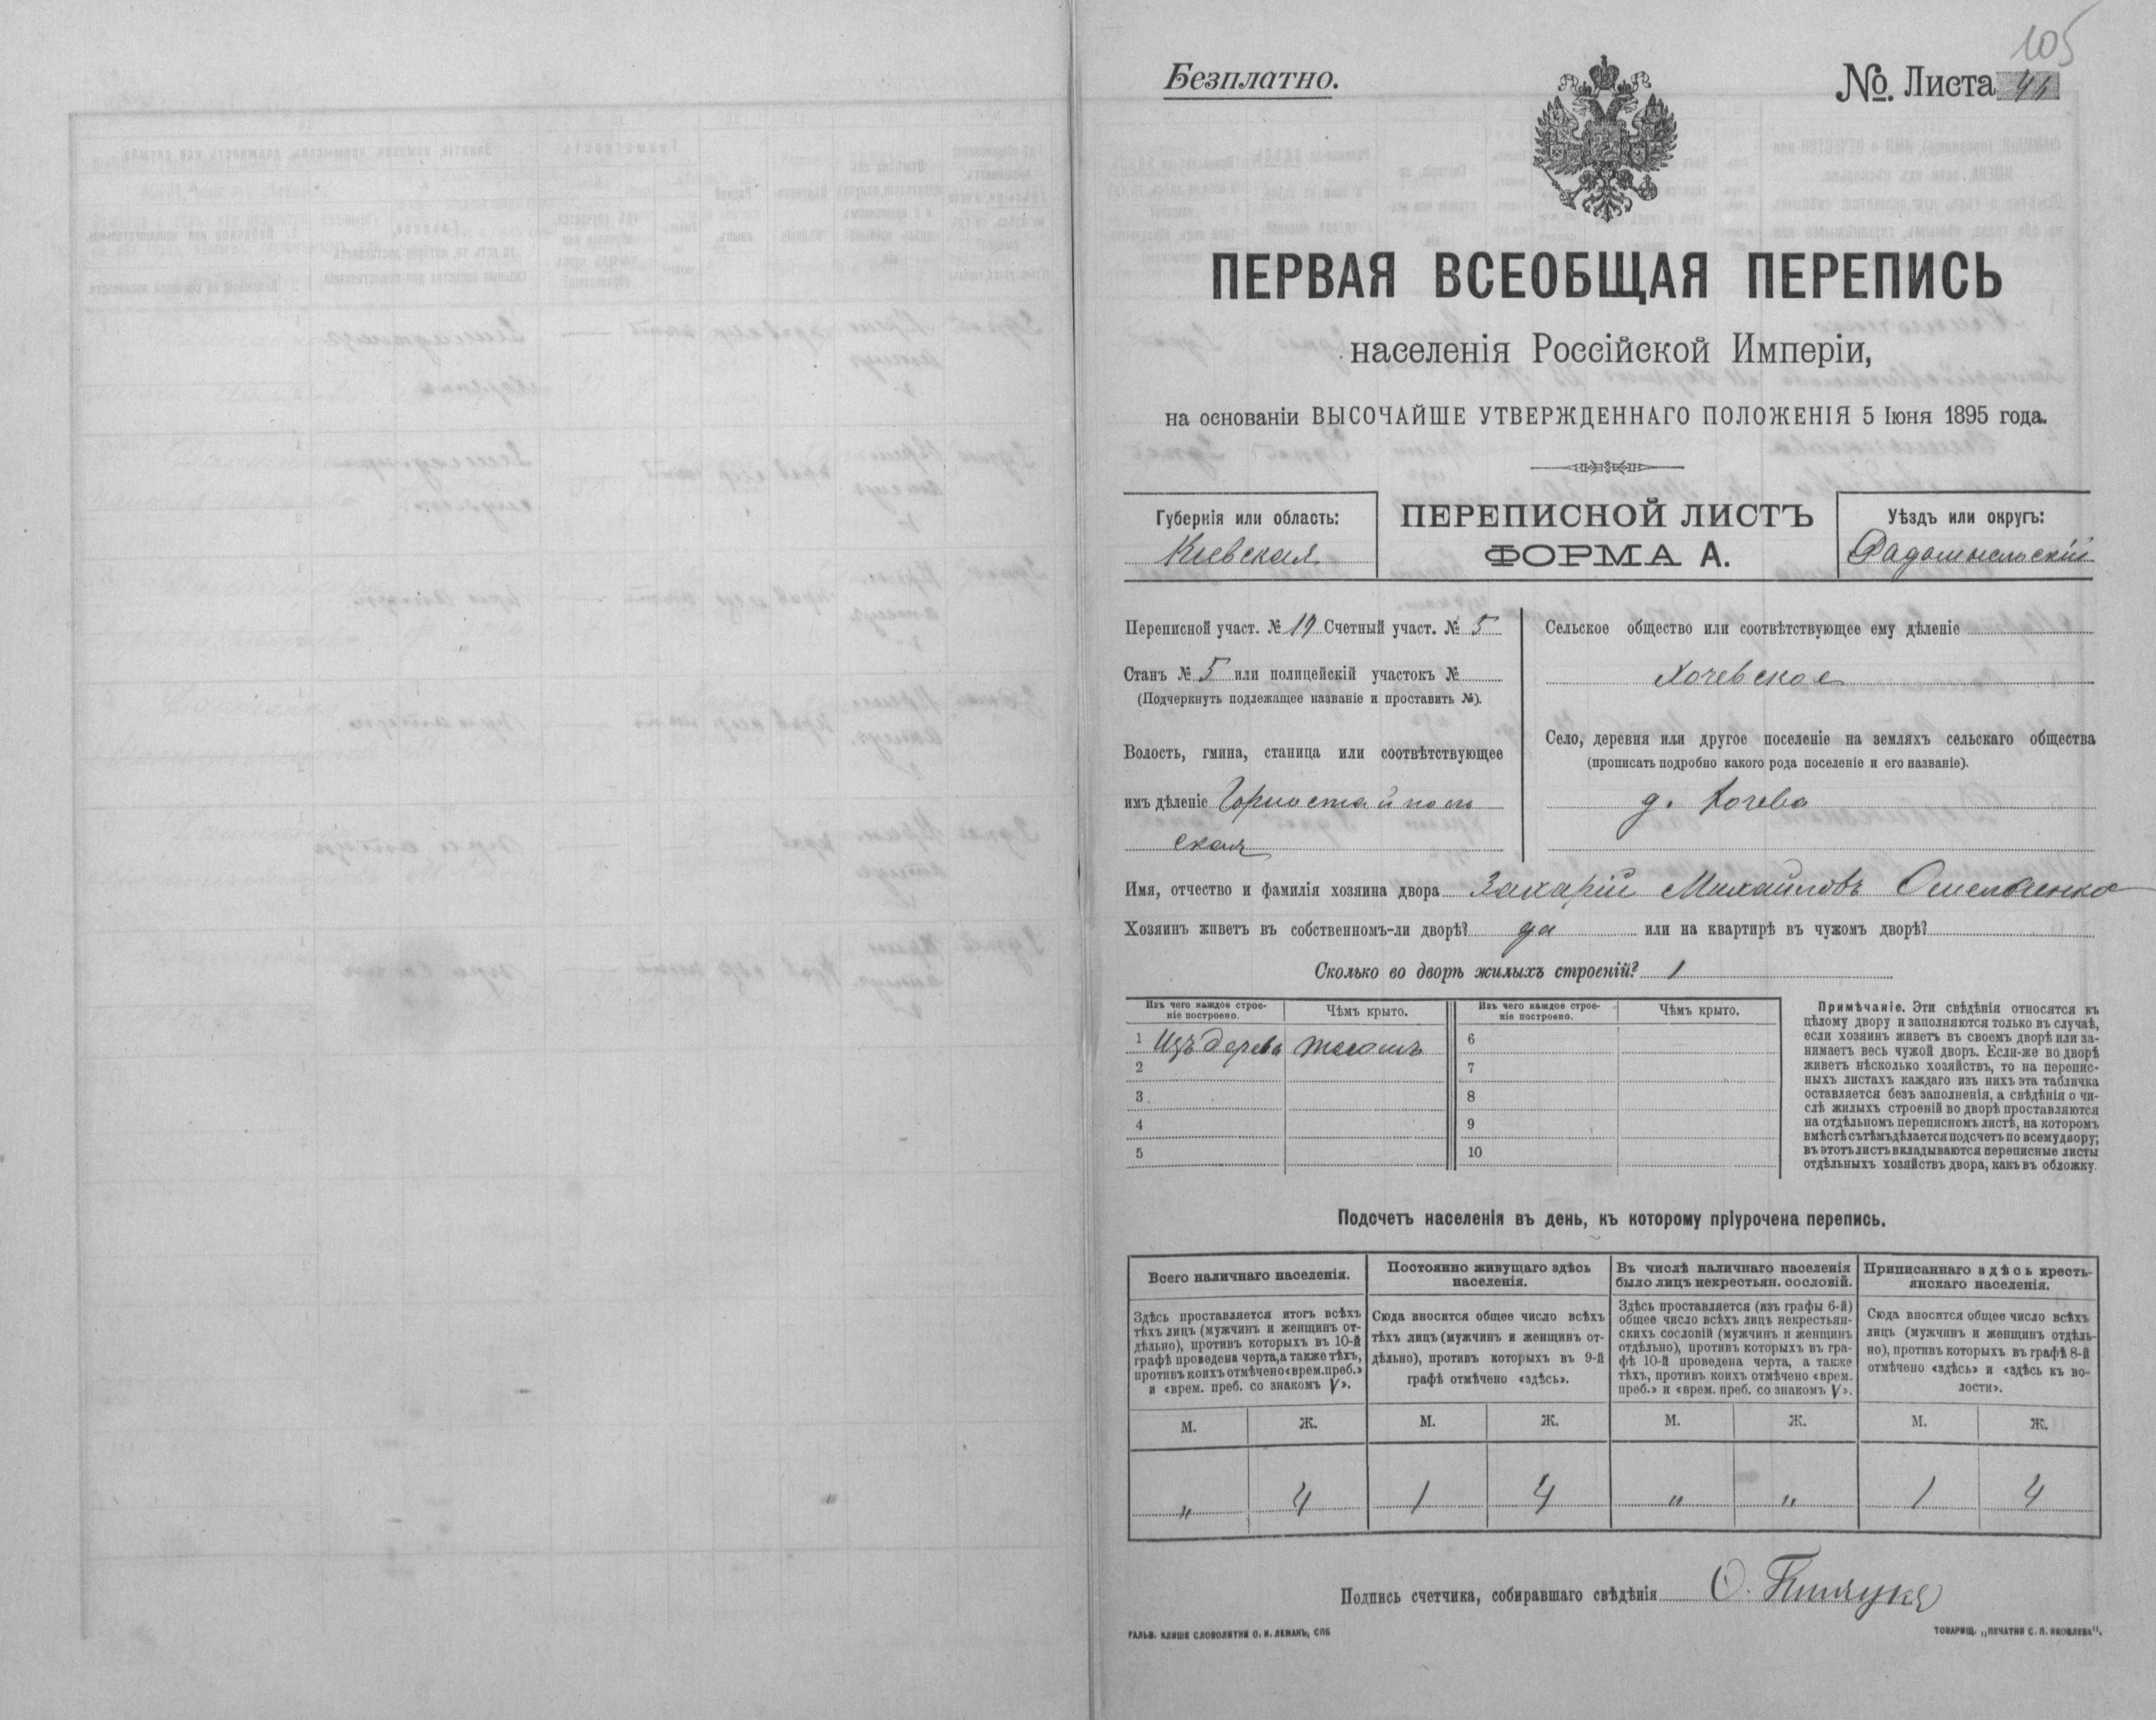 105
Безплатно.
№ Листа 44
ПЕРВАЯ ВСЕОБЩАЯ ПЕРЕПИСЬ
населенія Россійской Имперіи,
на основаніи ВЫСОЧАЙШЕ УТВЕРЖДЕННАГО ПОЛОЖЕНІЯ 5 Іюня 1895 года.
Губернія или область:
Кіевская
ПЕРЕПИСНОЙ ЛИСТЪ
ФОРМА А.
Уѣздъ или округъ:
Радомысльскій
Переписной участ. № 19 Счетный участ. № 5
Станъ № 5 или полицейскій участокъ №
(Подчеркнуть подлежащее названіе и проставить №).
Волость, гмина, станица или соотвѣтствующее
имъ дѣленіе Горностайполь
ская
Сельское общество или соотвѣтствующее ему дѣленіе
Хочевское
Село, деревня или другое поселеніе на земляхъ сельскаго общества
(прописать подробно какого рода поселеніе и его названіе).
д. Хочева
Имя, отчество и фамилія хозяина двора Захарій Михайловъ Омельченко
Хозяинъ живетъ въ собственномъ-ли дворѣ? да или на квартирѣ въ чужомъ дворѣ?
Сколько во дворѣ жилыхъ строеній? 1
Изъ чего каждое строе-
ніе построено.
Чѣмъ крыто.
Изъ чего каждое строе-
ніе построено.
Чѣмъ крыто.
1 Изъ дерева
6
2 7
3 8
4 9
5 10
Примѣчаніе. Эти свѣдѣнія относятся къ
цѣлому двору и заполняются только въ случаѣ,
если хозяинъ живетъ въ своемъ дворѣ или за-
нимаетъ весь чужой дворъ. Если-же во дворѣ
живетъ нѣсколько хозяйствъ, то на перепис-
ныхъ листахъ каждаго изъ нихъ эта табличка
оставляется безъ заполненія, а свѣдѣнія о чи-
слѣ жилыхъ строеній во дворѣ проставляются
на отдѣльномъ переписномъ листѣ, на которомъ
вмѣстѣ съ тѣмъ дѣлается подсчетъ по всему двору;
въ этотъ листъ вкладываются переписные листы
отдѣльныхъ хозяйствъ двора, какъ въ обложку.
Подсчетъ населенія въ день, къ которому пріурочена перепись.
Всего наличнаго населенія.
Здѣсь проставляется итогъ всѣхъ
тѣхъ лицъ (мужчинъ и женщинъ от-
дѣльно), противъ которыхъ въ 10-й
графѣ проведена черта, а также тѣхъ,
противъ коихъ отмѣчено «врем. преб.»
и «врем. преб. со знакомъ V».
Постоянно живущаго здѣсь
населенія.
Сюда вносится общее число всѣхъ
тѣхъ лицъ (мужчинъ и женщинъ от-
дѣльно), противъ которыхъ въ 9-й
графѣ отмѣчено «здѣсь».
Въ числѣ наличнаго населенія
было лицъ некрестьян. сословій.
Здѣсь проставляется (изъ графы 6-й)
общее число всѣхъ лицъ некрестьян-
скихъ сословій (мужчинъ и женщинъ
отдѣльно), противъ которыхъ въ гра-
фѣ 10-й проведена черта, а также
тѣхъ, противъ коихъ отмѣчено «врем.
преб.» и «врем. преб. со знакомъ V».
Приписаннаго здѣсь кресть-
янскаго населенія.
Сюда вносится общее число всѣхъ
лицъ (мужчинъ и женщинъ отдѣль-
но), противъ которыхъ въ графѣ 8-й
отмѣчено «здѣсь» и «здѣсь къ во-
лости».
М. Ж. М. Ж. М. Ж. М. Ж.
" 4 1 4 " " 1 4
Подпись счетчика, собиравшаго свѣдѣнія О.
ГАЛЬВ. КЛИШЕ СЛОВОЛИТНИ О. И. ЛЕМАНЪ, СПБ
ТОВАРИЩ. „ПЕЧАТНЯ С. П. ЯКОВЛЕВА".